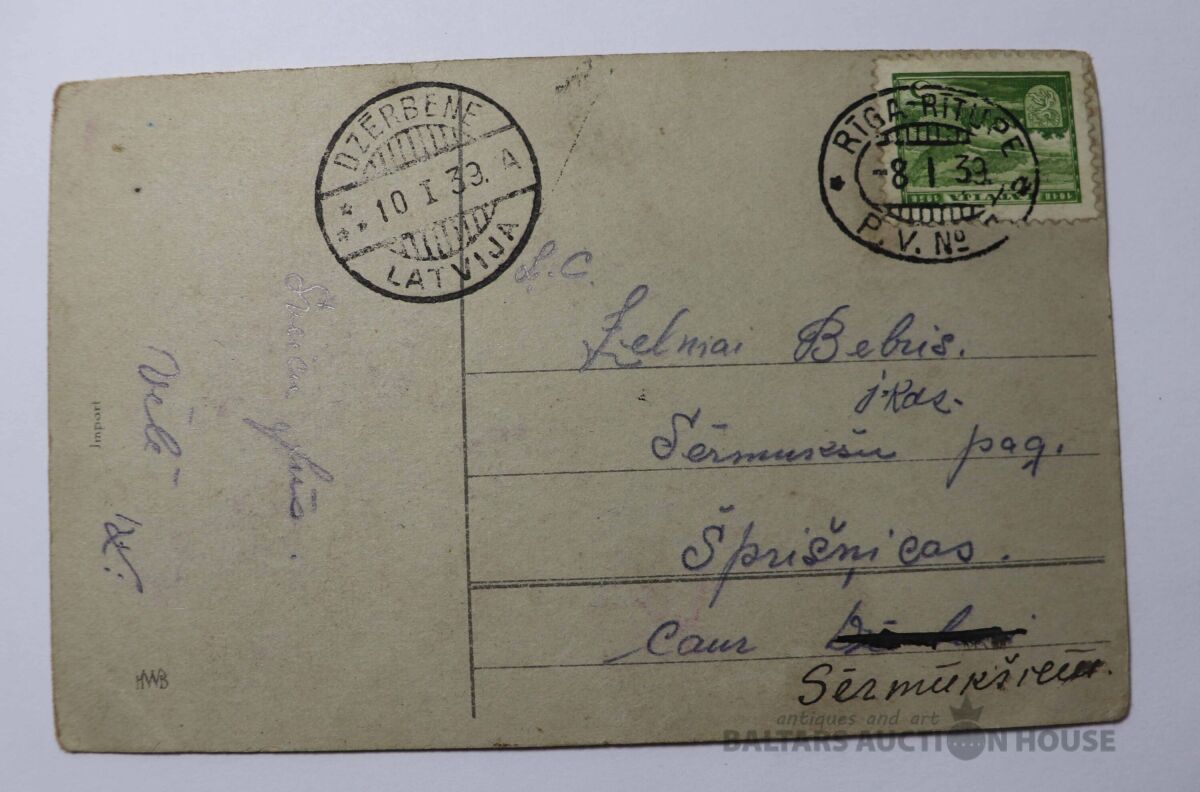 DZĒRBENE
10 I 39. A
LATVIJA
RĪGA-RĪTUPE
-8 I 39.
P. V. Nº
LATVIJA
Import
Vēlē
HWB
Bebris.
j-kdz.
Sērmukšu pag.
Šprišņicas.
Caur
Sērmūkšiem.
antiques and art
BALTARS AUCTION HOUSE